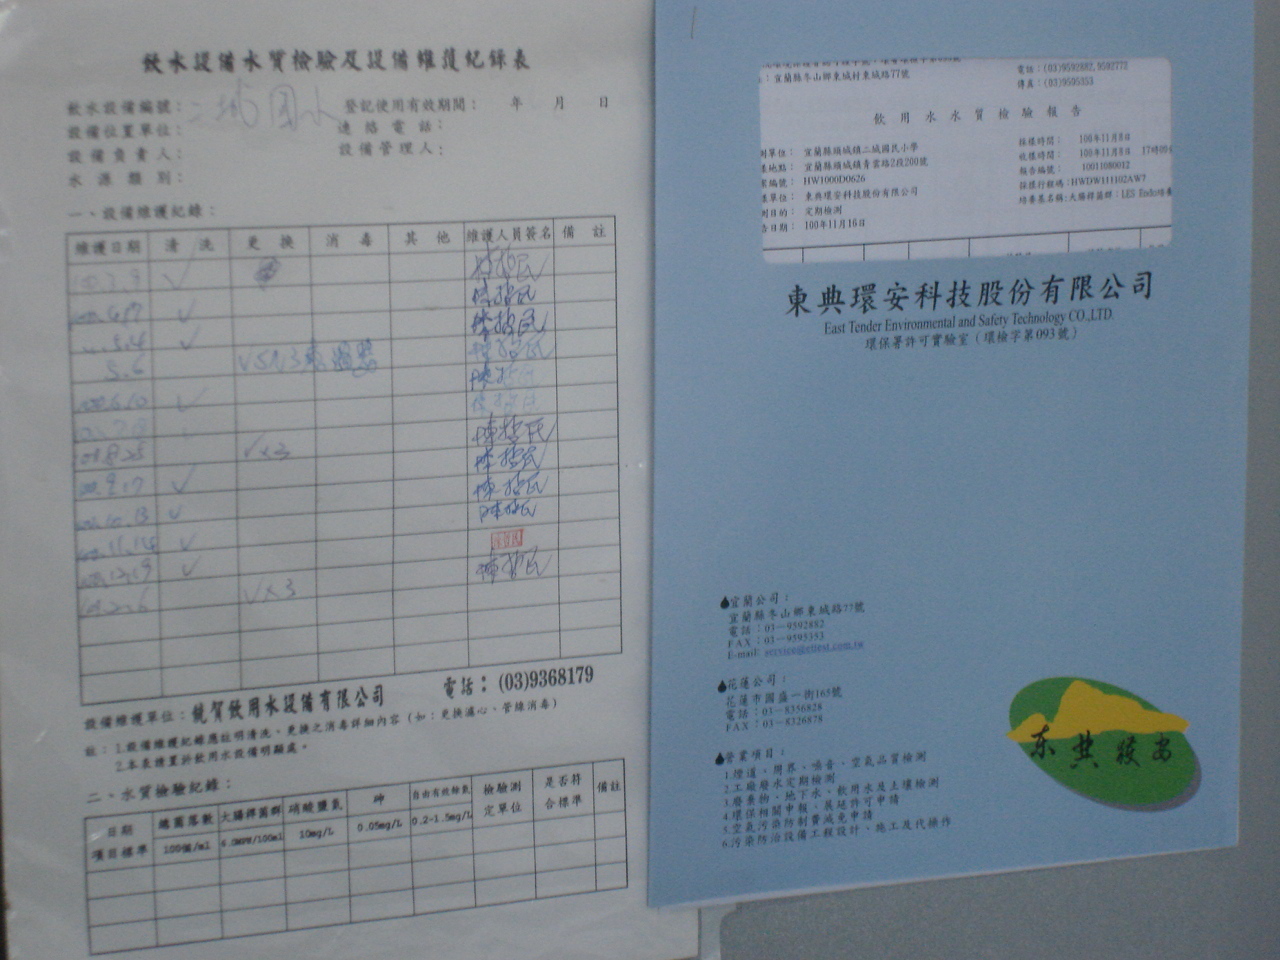 飲水設備水質檢驗及設備維護紀錄表
飲水設備編號：
登記使用有效期間： 年 月 日
設備位置單位：
連絡電話：
設備負責人：
設備管理人：
水源類別：
一、設備維護紀錄：
維護日期 清洗 更換 消毒 其他 維護人員簽名 備註
100.3.9 ✓
100.4.17 ✓
5.4 ✓
5.6
100.6.10 ✓
✓x3
100.9.17 ✓
100.10.13 ✓
100.11.14 ✓
100.12.19 ✓
101.2.6 ✓x3
設備維護單位：飲用水設備有限公司 電話：(03)9368179
註：1.設備維護紀錄應註明清洗、更換之消毒詳細內容（如：更換濾心、管線消毒）
2.本表請置於飲用水設備明顯處。
二、水質檢驗紀錄：
日期 總菌落數 大腸桿菌群 硝酸鹽氮 砷 自由有效餘氯 檢驗測定單位 是否符合標準 備註
項目標準 100個/ml 6.0MPN/100ml 10mg/L 0.05mg/L 0.2~1.5mg/L
：宜蘭縣冬山鄉東城村東城路77號
電話：(03)9592882,9592772
傳真：(03)9595353
飲用水水質檢驗報告
單位： 宜蘭縣頭城鎮二城國民小學
地點： 宜蘭縣頭城鎮青雲路2段200號
編號： HW1000D0626
單位： 東典環安科技股份有限公司
目的： 定期檢測
日期： 100年11月16日
採樣時間： 100年11月8日
收樣時間： 100年11月8日 17時
報告編號： 10011080012
採樣行程碼：HWDW111102AW7
培養基名稱:大腸桿菌群：LES Endo培養
東典環安科技股份有限公司
East Tender Environmental and Safety Technology CO.,LTD.
環保署許可實驗室（環檢字第093號）
宜蘭公司：
宜蘭縣冬山鄉東城路77號
電話：03－9592882
FAX：03－9595353
E-mail: service@ettest.com.tw
花蓮公司：
花蓮市國盛一街165號
電話：03－8356828
FAX：03－8326878
營業項目：
1.煙道、周界、噪音、空氣品質檢測
2.工廠廢水定期檢測
3.廢棄物、地下水、飲用水及土壤檢測
4.環保相關申報、展延許可申請
5.空氣污染防制費減免申請
6.污染防治設備工程設計、施工及代操作
东典环安